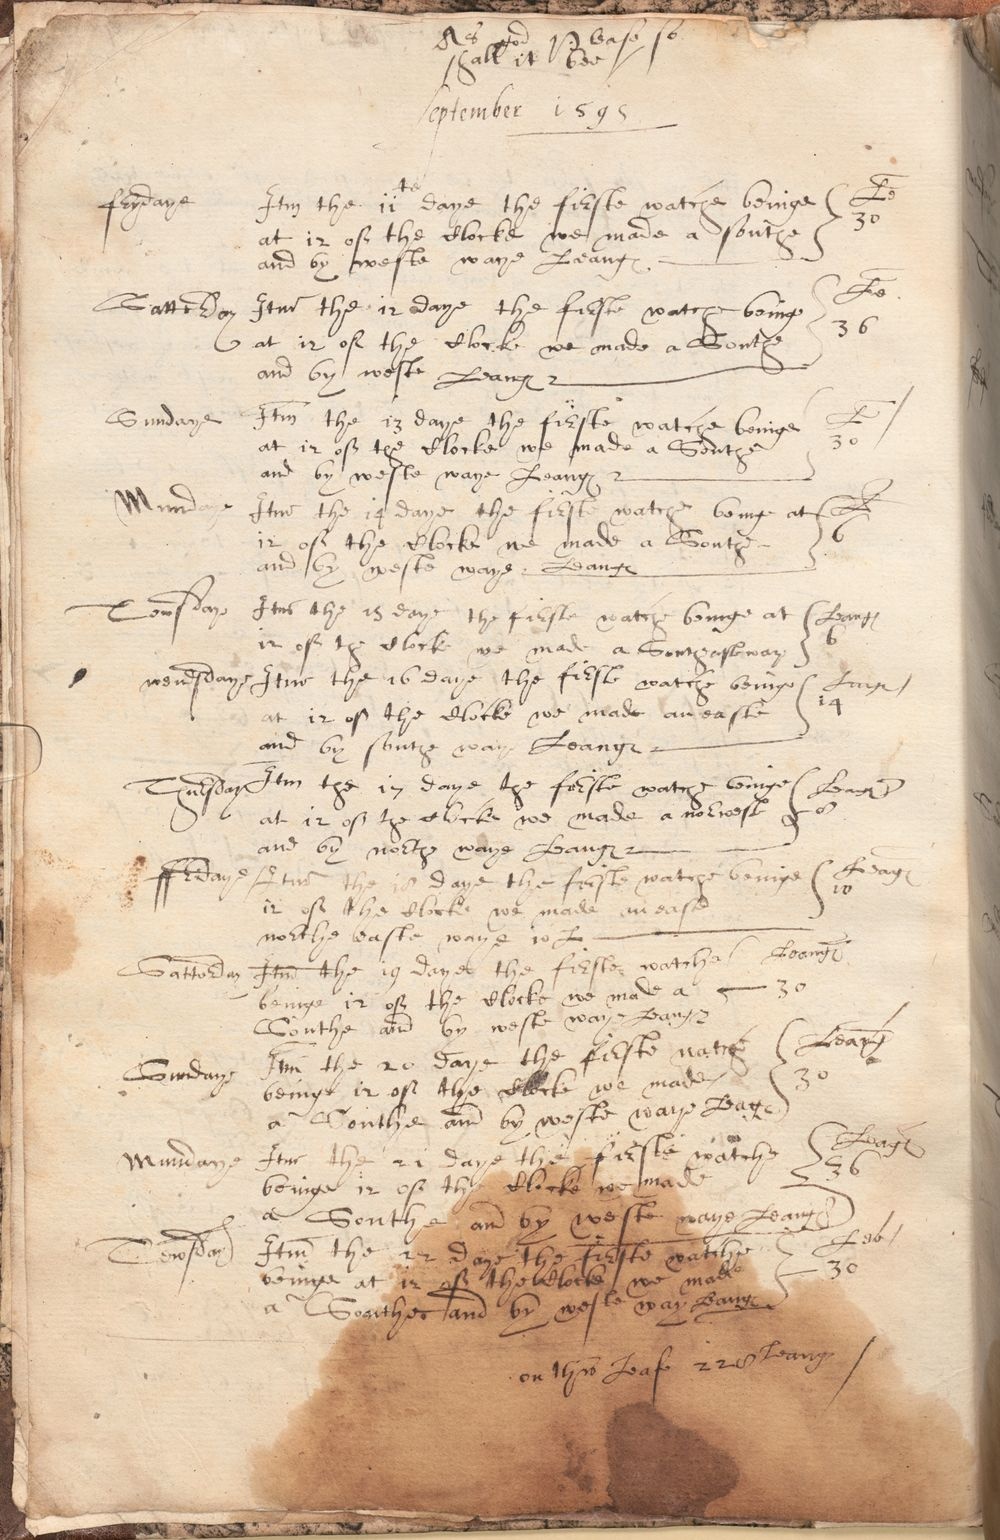 As god please so
shall it bee
September 1595
frydaye Itm the 11te daye the firste watche beinge Le
at 12 of the Clocke we made a southe 30
and by weste waye Leang
Satterday Itm the 12 daye the firste watche beinge Le
at 12 of the Clocke we made a Southe 36
and by weste Leang
Sundaye Itm the 13 daye the firste watche beinge L
at 12 of the Clocke we made a Southe 30
and by weste waye Leang
Mundaye Itm the 14 daye the firste watche beinge at L
12 of the Clocke we made a Southe 6
and by weste waye Leang
Tewsdaye Itm the 15 daye the firste watche beinge at Leang
12 of the Clocke we made a Southeasteway 6
wensdaye Itm the 16 daye the firste watche beinge Leage
at 12 of the Clocke we made an easte 14
and by southe way Leang
Thursday Itm the 17 daye the firste watche beinge Leag
at 12 of the Clocke we made a norwest 8
and by northe waye Leang
ffridaye Itm the 18 daye the firste watche beinge Leag
12 of the Clocke we made an east 10
northe easte waye 10 L
Satterday Itm the 19 daye the firste watche Leang
beinge 12 of the Clocke we made a 30
Southe and by weste waye Leang
Sundaye Itm the 20 daye the firste watche Leang
beinge 12 of the Clocke we made 30
a Southe and by weste waye Leag
Mundaye Itm the 21 daye the firste watche Leag
beinge 12 of the Clocke we made 36
a Southe and by weste waye Leang
Tewsday Itm the 22 daye the firste watche Lea
beinge at 12 of the Clocke we made 30
a Southe and by weste way Leang
on this Leafe 228 Leang